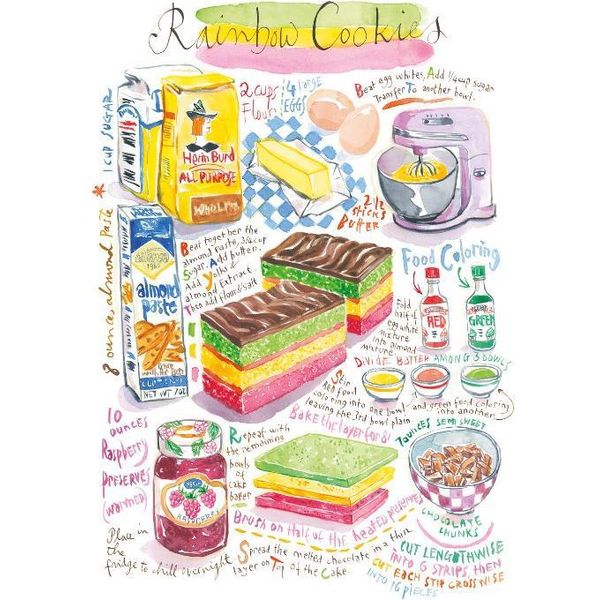 Rainbow Cookies
* 1 CUP SUGAR
2 cups
Flour
4 large
EGGS
Beat egg whites, Add 1/4 cup sugar
Transfer To another bowl.
ALL PURPOSE
2 1/2
STICKS
BUTTER
8 ounce almond paste
almond
paste
NET WT 7OZ
Beat together the
almond paste, 3/4 cup
sugar. Add butter.
Add yolks &
almond Extract
Then add flour & salt
Food Coloring
RED
GREEN
Fold
half of
egg white
mixture
into almond
mixture
DIVIDE BATTER AMONG 3 BOWLS
Stir
RED food
coloring into one bowl
and green food coloring
into another
leaving the 3rd bowl plain
Bake the layer for 8'
10
ounces
Raspberry
preserves
(warmed)
RASPBERRY
Repeat with
the remaining
bowls
of
cake
batter
7 ounces SEMI SWEET
CHOCOLATE
CHUNKS
Brush on Half of the heated preserves
Place in
the
fridge to chill overnight
Spread the melted chocolate in a thin
layer on Top of the Cake.
CUT LENGTHWISE
INTO 6 STRIPS, THEN
CUT EACH STIP CROSSWISE
INTO 16 PIECES